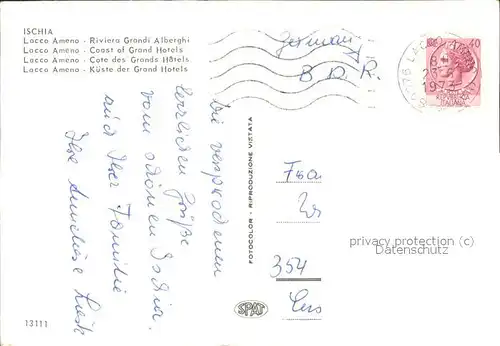 ISCHIA
Lacco Ameno - Riviera Grandi Alberghi
Lacco Ameno - Coast of Grand Hotels
Lacco Ameno - Cote des Grands Hôtels
Lacco Ameno - Küste der Grand Hotels
Germany
B D R.
40
1973
die versprochenen
herzlichen Grüße
vom schönen Ischia.
auch Ihrer Familie
Ihre
FOTOCOLOR - RIPRODUZIONE VIETATA
Frau
354
privacy protection (c)
Datenschutz
SPAS
13111